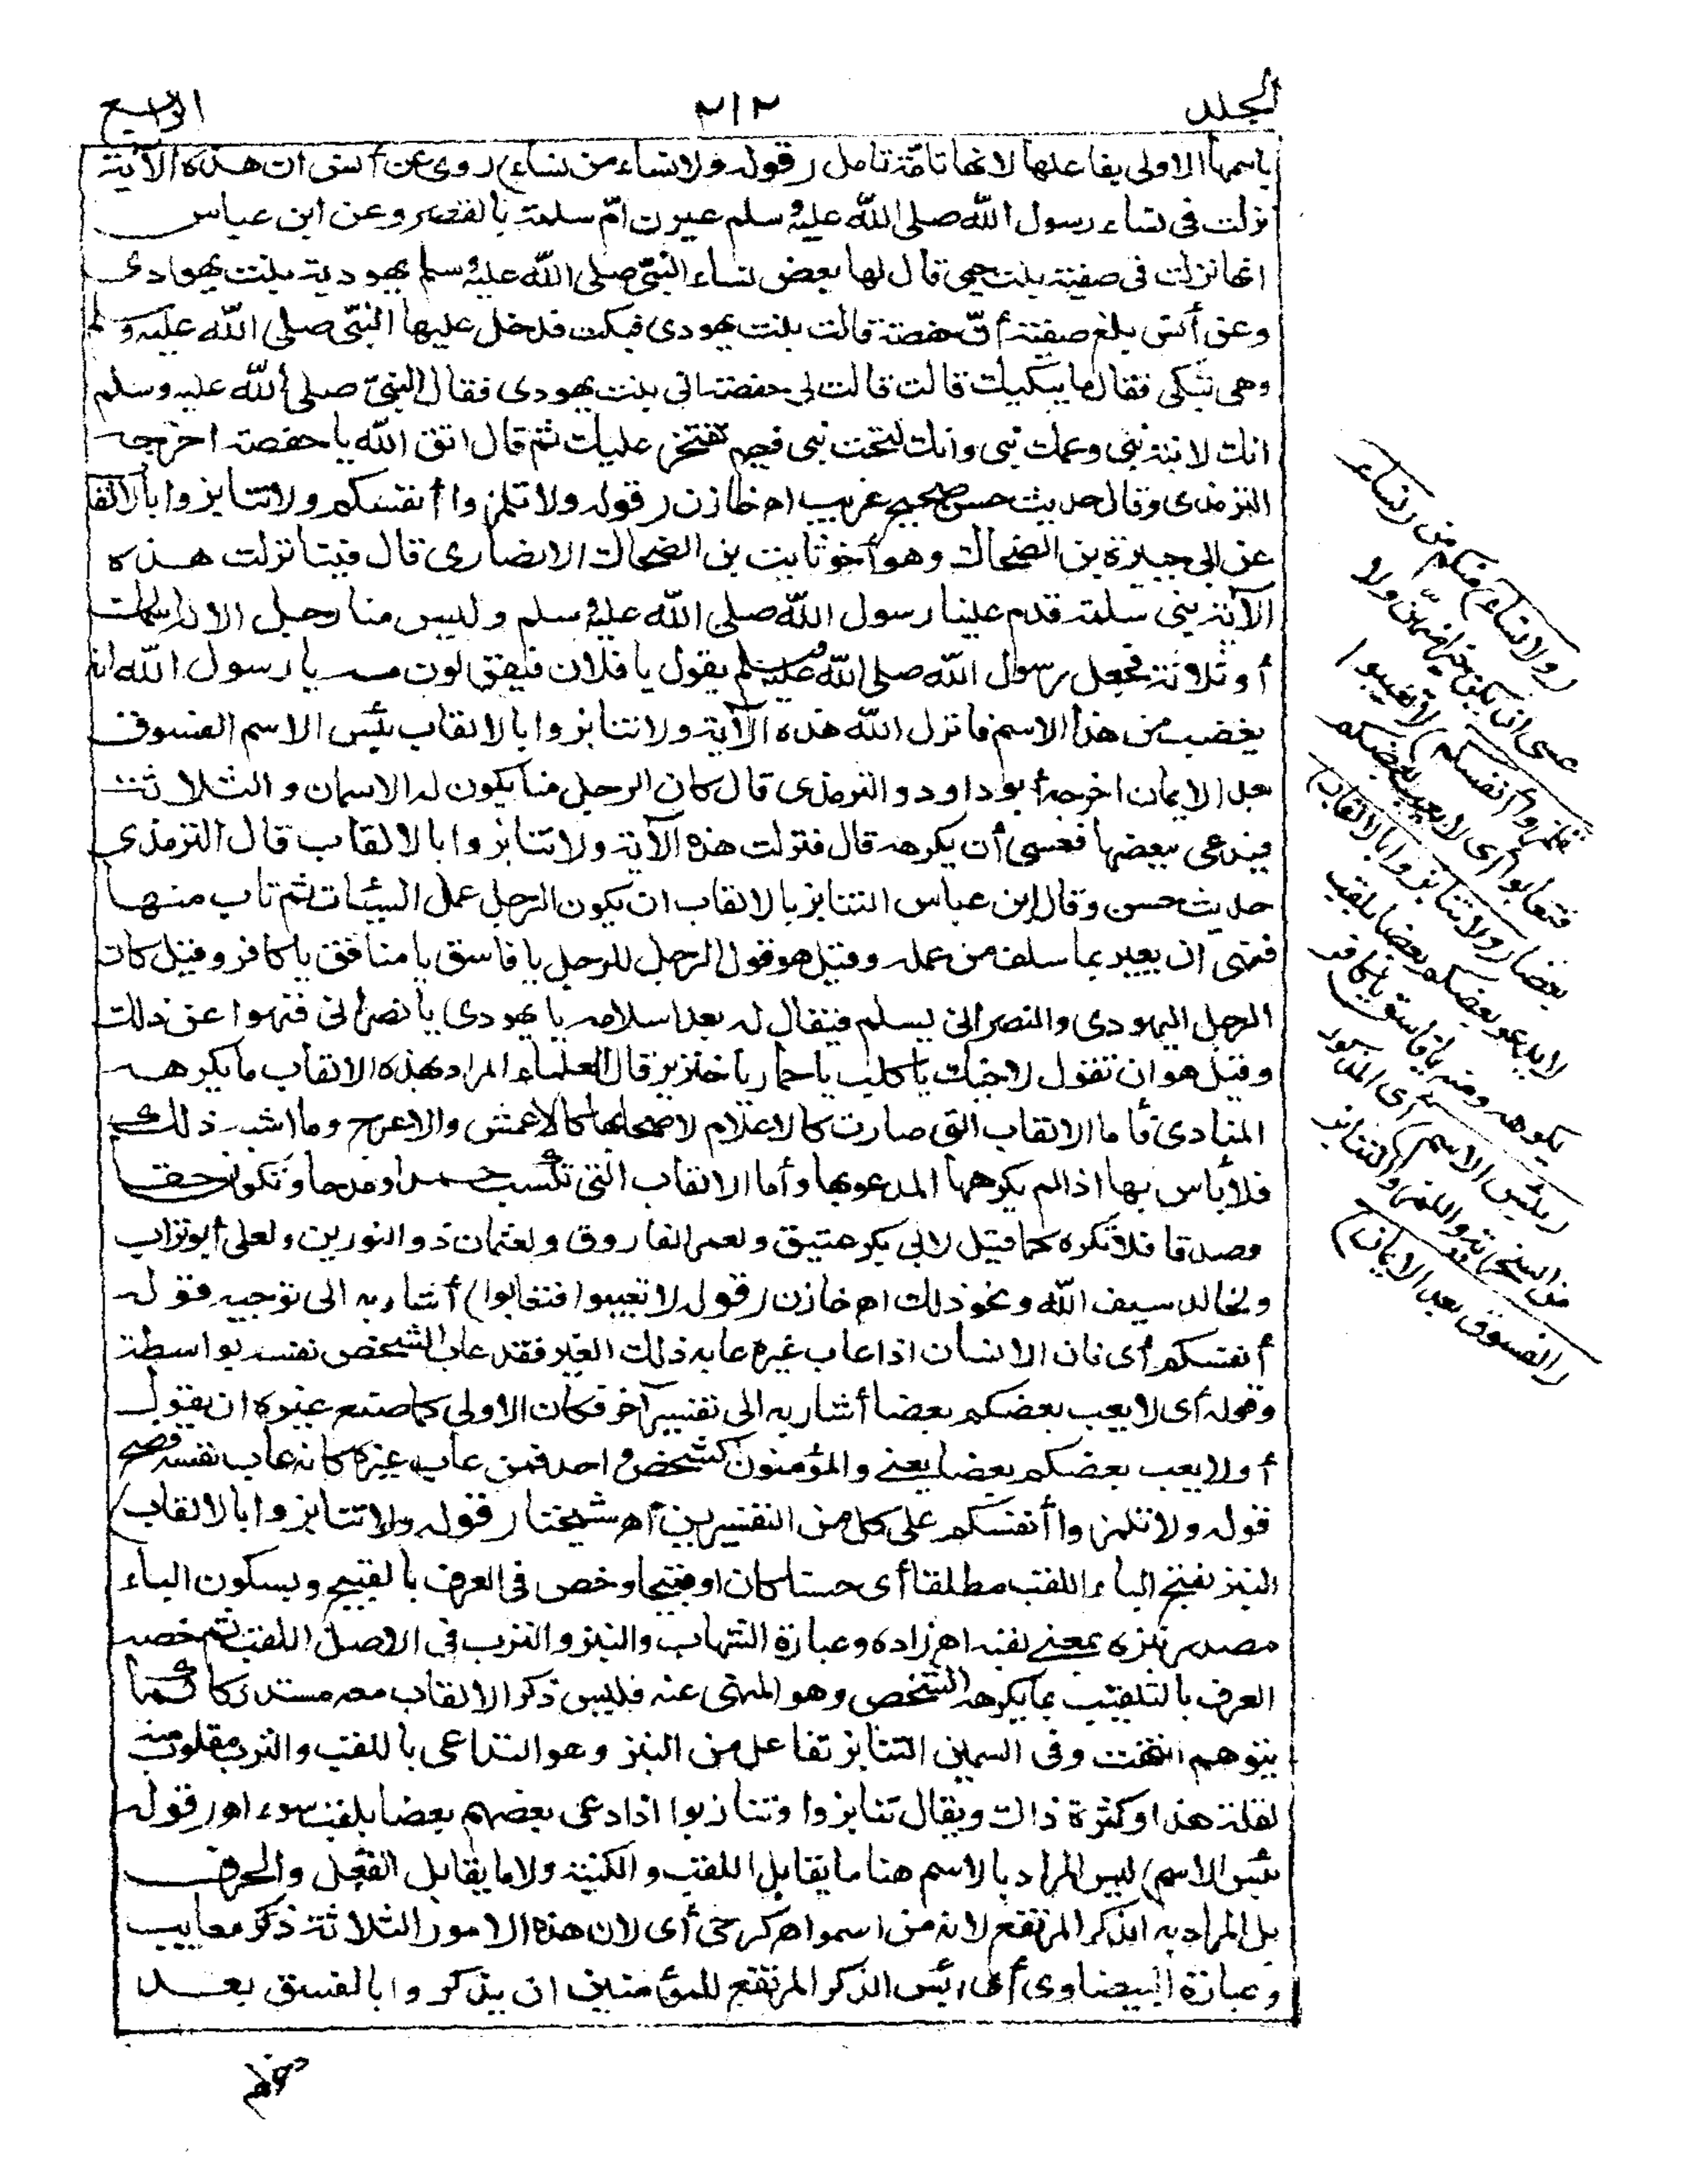 الجلد ٢١٢ الرابع
باسمها الاولى بفاعلها لانها تامّة تامل (قوله ولا نساء من نساء) روى عن أنس ان هذه الآية
نزلت فى نساء رسول الله صلى الله عليه وسلم عيرن امّ سلمة بالقصر وعن ابن عباس
انها نزلت فى صفية بنت حيى قال لها بعض نساء النبىّ صلى الله عليه وسلم يهودية بنت يهودى
وعن أنس بلغ صفية أنّ حفصة قالت بنت يهودى فبكت فدخل عليها النبىّ صلى الله عليه وسلم
وهى تبكى فقال ما يبكيك قالت قالت لى حفصة انى بنت يهودى فقال النبىّ صلى الله عليه وسلم
انك لابنة نبى وعمك نبى وانك لتحت نبى ففيم تفتخر عليك ثم قال اتق الله يا حفصة اخرجه
الترمذى وقال حديث حسن صحيح غريب اه خازن (قوله ولا تلمزوا أنفسكم ولا تنابزوا بالالقا
عن ابى جبيرة بن الضحاك وهو أخو ثابت بن الضحاك الانصارى قال فينا نزلت هذه
الآية بنى سلمة قدم علينا رسول الله صلى الله عليه وسلم وليس منا رجل الا له اسمان
أو ثلاثة فجعل رسول الله صلى الله عليه وسلم يقول يا فلان فيقولون مه يا رسول الله انه
يغضب من هذا الاسم فانزل الله هذه الآية ولا تنابزوا بالالقاب بئس الاسم الفسوق
بعد الايمان اخرجه أبو داود والترمذى قال كان الرجل منا يكون له الاسمان والثلاثة
فيدعى ببعضها فعسى أن يكرهه قال فنزلت هذه الآية ولا تنابزوا بالالقاب قال الترمذى
حديث حسن وقال ابن عباس التنابز بالالقاب ان يكون الرجل عمل السيئات ثم تاب منها
فنهى ان يعير بما سلف من عمله وقيل هو قول الرجل للرجل يا فاسق يا منافق يا كافر وقيل كان
الرجل اليهودى والنصرانى يسلم فيقال له بعد اسلامه يا يهودى يا نصرانى فنهوا عن ذلك
وقيل هو ان تقول لاخيك يا كلب يا حمار يا خنزير قال العلماء المراد بهذه الالقاب ما يكرهه
المنادى فأما الالقاب التى صارت كالاعلام لاصحابها كالاعمش والاعرج وما اشبه ذلك
فلا بأس بها اذا لم يكرهها المدعو بها وأما الالقاب التى تكسب حمدا ومدحا وتكون حقا
وصدقا فلا تكره كما قيل لابى بكر عتيق ولعمر الفاروق ولعثمان ذو النورين ولعلى أبو تراب
ولخالد سيف الله ونحو ذلك اه خازن (قوله لا تعيبوا فتعابوا) أشار به الى توجيه قوله
أنفسكم أى فان الانسان اذا عاب غيره عابه ذلك الغير فقد عاب الشخص نفسه بواسطة
وقوله أى لا يعب بعضكم بعضا أشار به الى تفسير آخر فكان الاولى كما صنع غيره ان يقول
أو لا يعب بعضكم بعضا يعنى والمؤمنون كشخص واحد فمن عاب غيره كانه عاب نفسه فصح
قوله ولا تلمزوا أنفسكم على كل من التفسيرين اه شيخنا (قوله ولا تنابزوا بالالقاب)
النبز بفتح الباء اللقب مطلقا أى حسنا كان او قبيحا وخص فى العرف بالقبيح وبسكون الباء
مصدر نبزه بمعنى لقبه اه زاده وعبارة الشهاب والنبز والنزب فى الاصل اللقب ثم خصه
العرف بالتلقيب بما يكرهه الشخص وهو المنهى عنه فليس ذكر الالقاب معه مستدركا كما
يتوهم انتهت وفى السمين التنابز تفاعل من النبز وهو التداعى باللقب والنزب مقلوب منه
لقلة هذا وكثرة ذاك ويقال تنابزوا وتنازبوا اذا دعى بعضهم بعضا بلقب سوء اه (قوله
بئس الاسم) ليس المراد بالاسم هنا ما يقابل اللقب والكنية ولا ما يقابل الفعل والحرف
بل المراد به الذكر المرتفع لانه من اسمو اه كرخى أى لان هذه الامور الثلاثة ذكر معايب
وعبارة البيضاوى أى بئس الذكر المرتفع للمؤمنين ان يذكروا بالفسق بعد
(ولا نساء) منكم (من نساء
عسى ان يكنّ خيرا منهن ولا
تلمزوا أنفسكم) لا تعيبوا
فتعابوا أى لا يعب بعضكم
بعضا (ولا تنابزوا بالالقاب)
لا يدعو بعضكم بعضا بلقب
يكرهه ومنه يا فاسق يا كافر
(بئس الاسم) أى المذكور
من السخرية واللمز والتنابز
(الفسوق بعد الايمان)